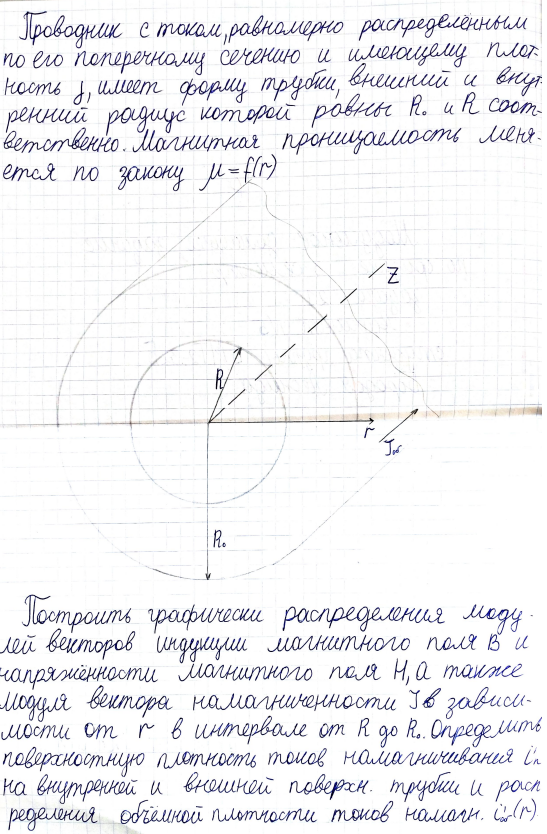 Проводник с током, равномерно распределённым
по его поперечному сечению и имеющему плот-
ность j, имеет форму трубки, внешний и внут-
ренний радиус которой равны R₀ и R соот-
ветственно. Магнитная проницаемость меня-
ется по закону μ = f(r)
Z
R
r
Jоб
R₀
Построить графически распределения моду-
лей векторов индукции магнитного поля B и
напряжённости магнитного поля H, а также
модуля вектора намагниченности J в зависи-
мости от r в интервале от R до R₀. Определить
поверхностную плотность токов намагничивания i'п
на внутренней и внешней поверхн. трубки и расп
ределения объёмной плотности токов намагн. i'об(r)